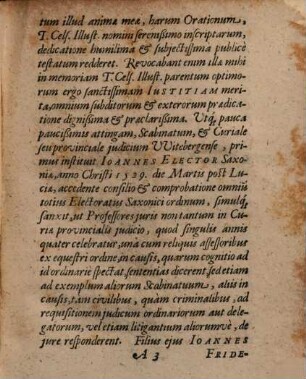 tum illud animæ meæ, harum Orationum,
T. Cels. Illust. nomini serenissimo inscriptarum,
dedicatione humilima & subjectissima publicè
testatum redderet. Revocabant enim illa mihi
in memoriam T. Cels. Illust. parentum optimo-
rum ergo sanctissimam IUSTITIAM meri-
ta, omnium subditorum & exterorum prædica-
tione dignissima & præclarissima. Utq́; pauca
paucissimis attingam, Scabinatum, & Curiale
seu provinciale judicium VVitebergense, pri-
mus instituit IOANNES ELECTOR Saxo-
niæ, anno Christi 1529. die Martis post Lu-
ciæ, accedente consilio & comprobatione omnium
totius Electoratus Saxonici ordinum, simulq́;
sanxit, ut Professores juris non tantum in Cu-
ria provincialis judicio, quod singulis annis
quater celebratur, una cum reliquis assessoribus
ex equestri ordine, in causis, quarum cognitio ad
id ordinariè spectat, sententias dicerent, sed etiam
ad exemplum aliorum Scabinatuum, aliis in
causis, tam civilibus, quàm criminalibus, ad
requisitionem judicum ordinariorum aut dele-
gatorum, vel etiam litigantium aliorumvè, de
jure responderent. Filius ejus IOANNES
A 3 FRIDE-